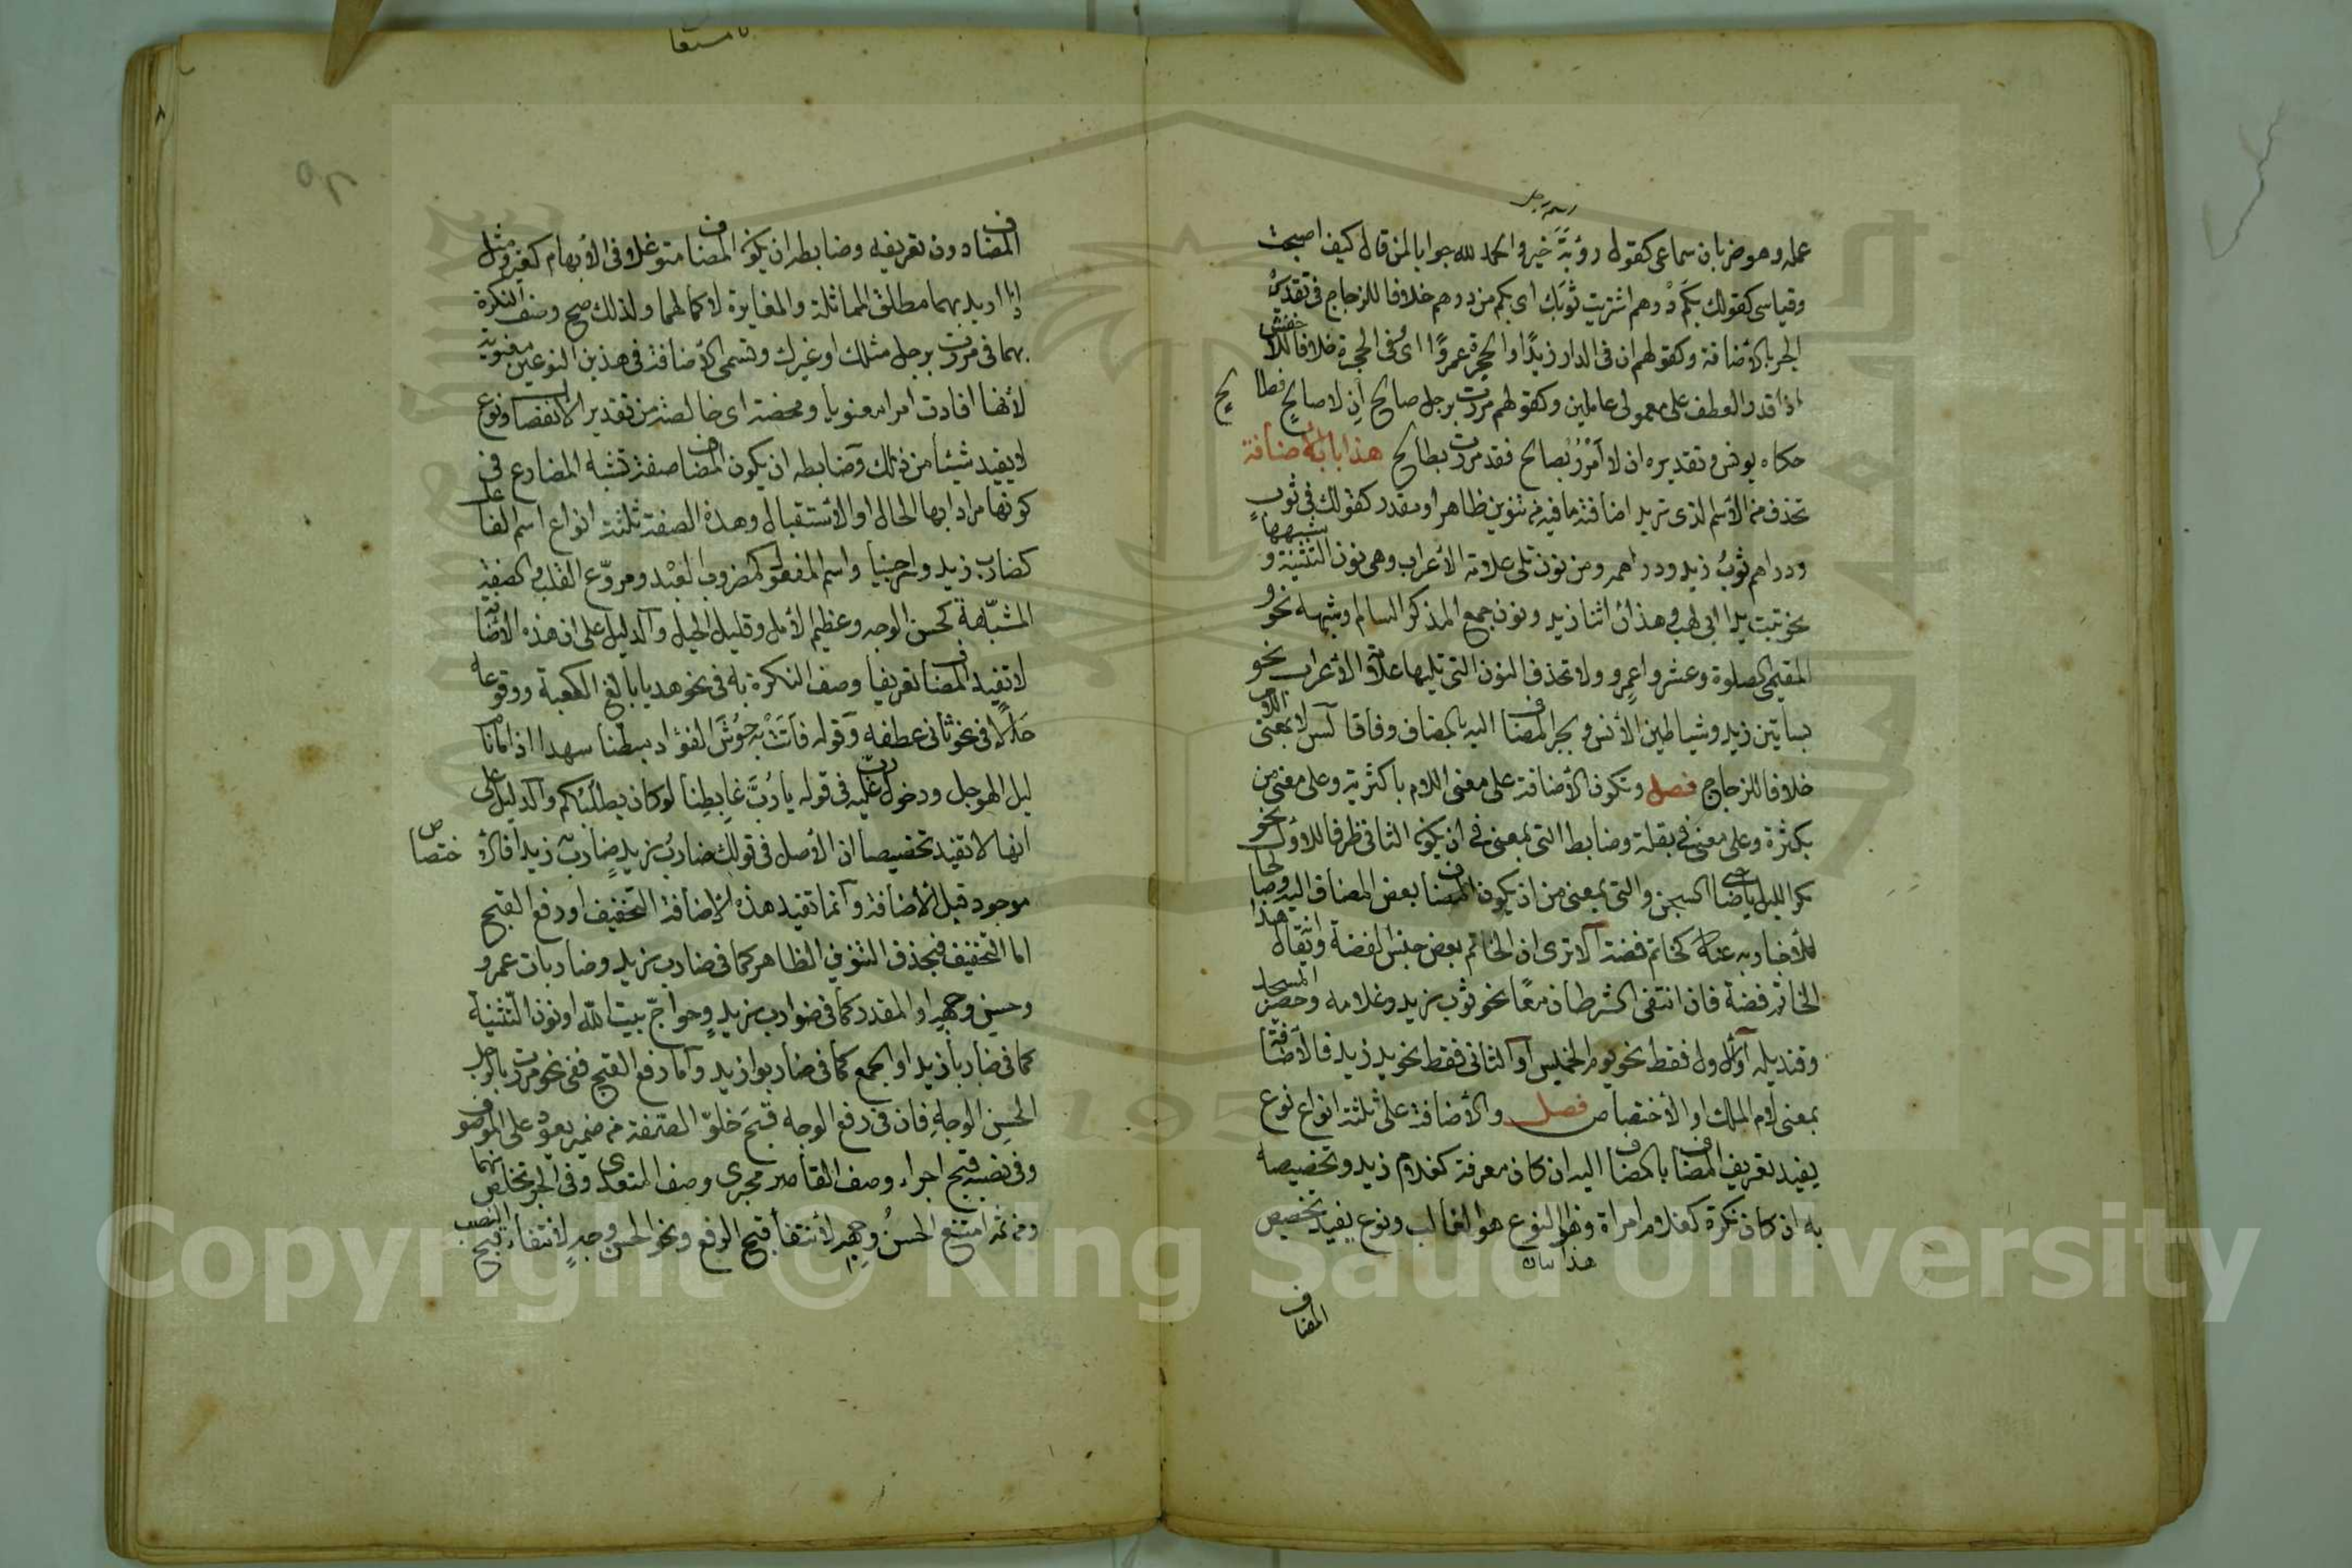 اسم رجل
عمله وهو ضربان سماعى كقول رؤبة خير والحمد لله جوابا لمن قال كيف اصبحت
وقياسى كقولك بكم درهم اشتريت ثوبك اى بكم من درهم خلافا للزجاج فى تقديره
الجر بالأضافة وكقولهم ان فى الدار زيدًا والحجرة عمروًا اى وفى الحجرة خلافا للأخفش
اذا قدر العطف على معمولى عاملين وكقولهم مررت برجل صالح ان لا صالح فطالح
حكاه يونس وتقديره ان لا امرر بصالح فقد مررت بطالح هذا باب الأضافة
تحذف من الأسم الذى تريد اضافته ما فيه من تنوين ظاهر او مقدر كقولك فى ثوب
ودراهم ثوب زيد ودراهمه ومن نون تلى علامة الأعراب وهى نون التثنية وشبهها
نحو تبت يدا ابى لهب وهذان اثنا زيد ونون جمع المذكر السالم وشبهه نحو و
المقيمى الصلوة وعشروا عمرو ولا تحذف النون التى تليها علامة الأعراب نحو
بساتين زيد وشياطين الأنس ويجر المضاف اليه بالمضاف وفاقا لس لا بمعنى اللام
خلافا للزجاج فصل وتكون الأضافة على معنى اللام باكثرية وعلى معنى من
بكثرة وعلى معنى فى بقلة وضابط التى بمعنى فى ان يكون الثانى ظرفا للاول نحو
مكر الليل يا صاحبى السجن والتى بمعنى من ان يكون المضاف بعض المضاف اليه وصالحا
للأخبار به عنه كخاتم فضة الا ترى ان الخاتم بعض جنس الفضة وانه يقال هذا
الخاتم فضة فان انتفى الشرطان معًا نحو ثوب زيد وغلامه وحصير المسجد
وقنديله او الأول فقط نحو يوم الخميس او الثانى فقط نحو يد زيد فالأضافة
بمعنى لام الملك او الأختصاص فصل والأضافة على ثلثة انواع نوع
يفيد تعريف المضاف بالمضاف اليه ان كان معرفة كغلام زيد وتخصيصه
به ان كان نكرة كغلام امراة وهذا النوع هو الغالب ونوع يفيد تخصيص
المضاف
المضاف دون تعريفه وضابطه ان يكون المضاف متوغلا فى الأبهام كغير ومثل
اذا اريد بهما مطلق المماثلة والمغايرة لا كمالهما ولذلك صح وصف النكرة
بهما فى مررت برجل مثلك او غيرك وتسمى الأضافة فى هذين النوعين معنوية
لأنها افادت امرا معنويا ومحضة اى خالصة من تقدير الانفصال ونوع
لا يفيد شيئا من ذلك وضابطه ان يكون المضاف صفة تشبه المضارع فى
كونها مرادا بها الحال او الأستقبال وهذه الصفة ثلثة انواع اسم الفاعل
كضارب زيد وراجينا واسم المفعول كمضروب العبد ومروع القلب والصفة
المشبّهة كحسن الوجه وعظيم الأمل وقليل الحيل والدليل على ان هذه الأضافة
لا تفيد المضاف تعريفا وصف النكرة به فى نحو هديا بالغ الكعبة ووقوعه
حالا فى نحو ثانى عطفه وقوله فاتت به حوش الفؤاد مبطنا سهدا اذا ما نام
ليل الهوجل ودخول رب عليه فى قوله يا رب غابطنا لو كان يطلبكم والدليل على
انها لا تفيد تخصيصا ان الأصل فى قولك ضارب زيد ضارب زيدا فالأختصاص
موجود قبل الأضافة وانما تفيد هذه الأضافة التخفيف او رفع القبح
اما التخفيف فبحذف التنوين الظاهر كما فى ضارب زيد وضاربات عمرو
وحسن وجهه او المقدر كما فى ضوارب زيد وحواجّ بيت الله او نون التثنية
كما فى ضاربا زيد او الجمع كما فى ضاربوا زيد واما رفع القبح ففى نحو مررت بالرجل
الحسن الوجه فان فى رفع الوجه قبح خلوّ الصفة من ضمير يعود على الموصوف
وفى نصبه قبح اجراء وصف القاصر مجرى وصف المتعدى وفى الجر تخلص منهما
ومن ثم امتنع الحسن وجهه لأنتفاء قبح الرفع ونحو الحسن وجه لانتفاء قبح النصب
Copyright © King Saud University